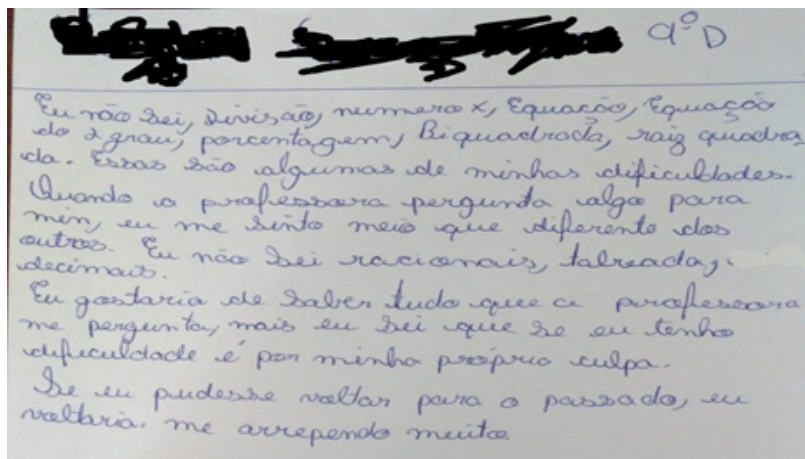 9º D
Eu não sei, divisão, numero x, Equação, Equação
do 2 grau, porcentagem, Biquadrada, raiz quadra
da. Essas são algumas de minhas dificuldades.
Quando a professora pergunta algo para
min, eu me sinto meio que diferente dos
outros. Eu não sei racionais, tabuada,
decimais.
Eu gostaria de saber tudo que a professora
me pergunta, mais eu sei que se eu tenho
dificuldade é por minha própria culpa.
Se eu pudesse voltar para o passado, eu
voltaria. me arrependo muito.